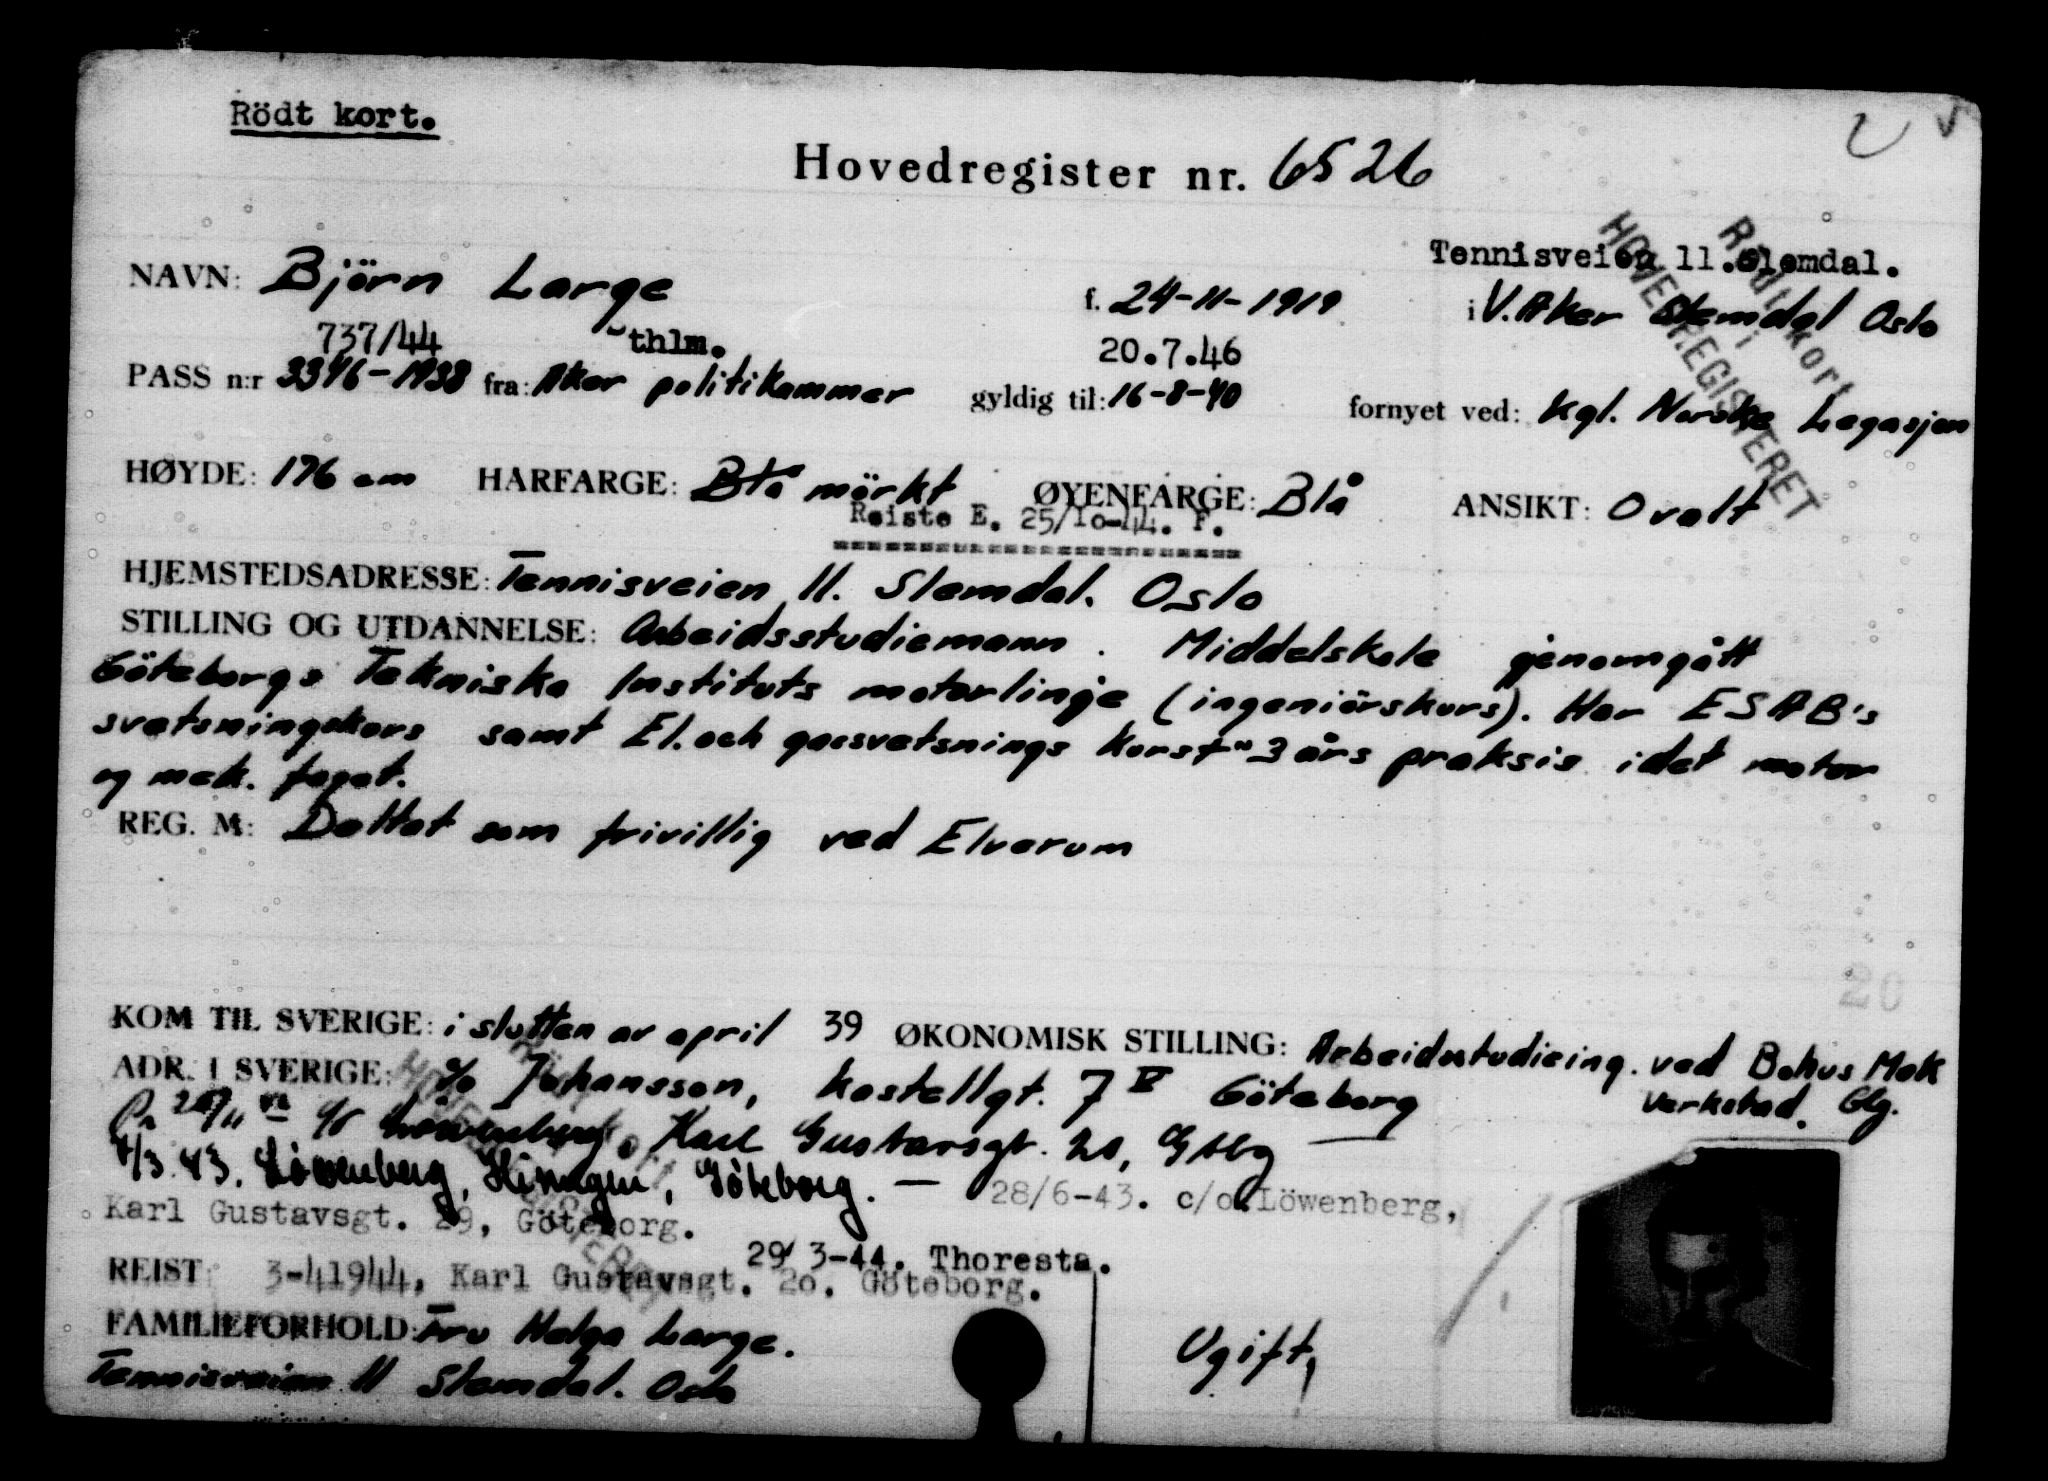 Rödt kort.
Hovedregister nr. 6526
Rødt kort i
HOVEDREGISTERET
Tennisveien 11. Slemdal.
NAVN: Björn Large f. 24-11-1919 i V. Aker Slemdal Oslo
737/44 thlm. 20.7.46
PASS n:r 3346-1938 fra: Aker politikammer gyldig til: 16-8-40 fornyet ved: Kgl. Norske Legasjon
HØYDE: 176 cm HARFARGE: Blå mörkt ØYENFARGE: Blå ANSIKT: Ovalt
Reiste E. 25/1o-44. F.
HJEMSTEDSADRESSE: Tennisveien 11. Slemdal. Oslo
STILLING OG UTDANNELSE: Arbeidsstudiemann. Middelskole genomgått
Göteborgs Tekniska Instituts motorlinje (ingeniörskurs). Har ESAB's
svetsningskurs samt El. och gassvetsnings kurs + 3 års praksis i det motor
og mek. faget.
REG. M: Deltat som frivillig ved Elverum
KOM TIL SVERIGE: i slutten av april 39 ØKONOMISK STILLING: Arbeidsstudieing. ved Bohus Mek
Verkstad. Gbg.
ADR. I SVERIGE: c/o Johansson, Kastellgt. 7 IV Göteborg
c/o Löwenberg, Karl Gustavsgt. 20, Gtbg
4/3 43. Löwenberg, Göteborg. — 28/6-43. c/o Löwenberg,
Karl Gustavsgt. 29, Göteborg.
29/3-44. Thoresta.
REIST: 3-41944, Karl Gustavsgt. 2o. Göteborg.
FAMILIEFORHOLD: Fru Helga Large. Ugift,
Tennisveien 11 Slemdal. Oslo
20